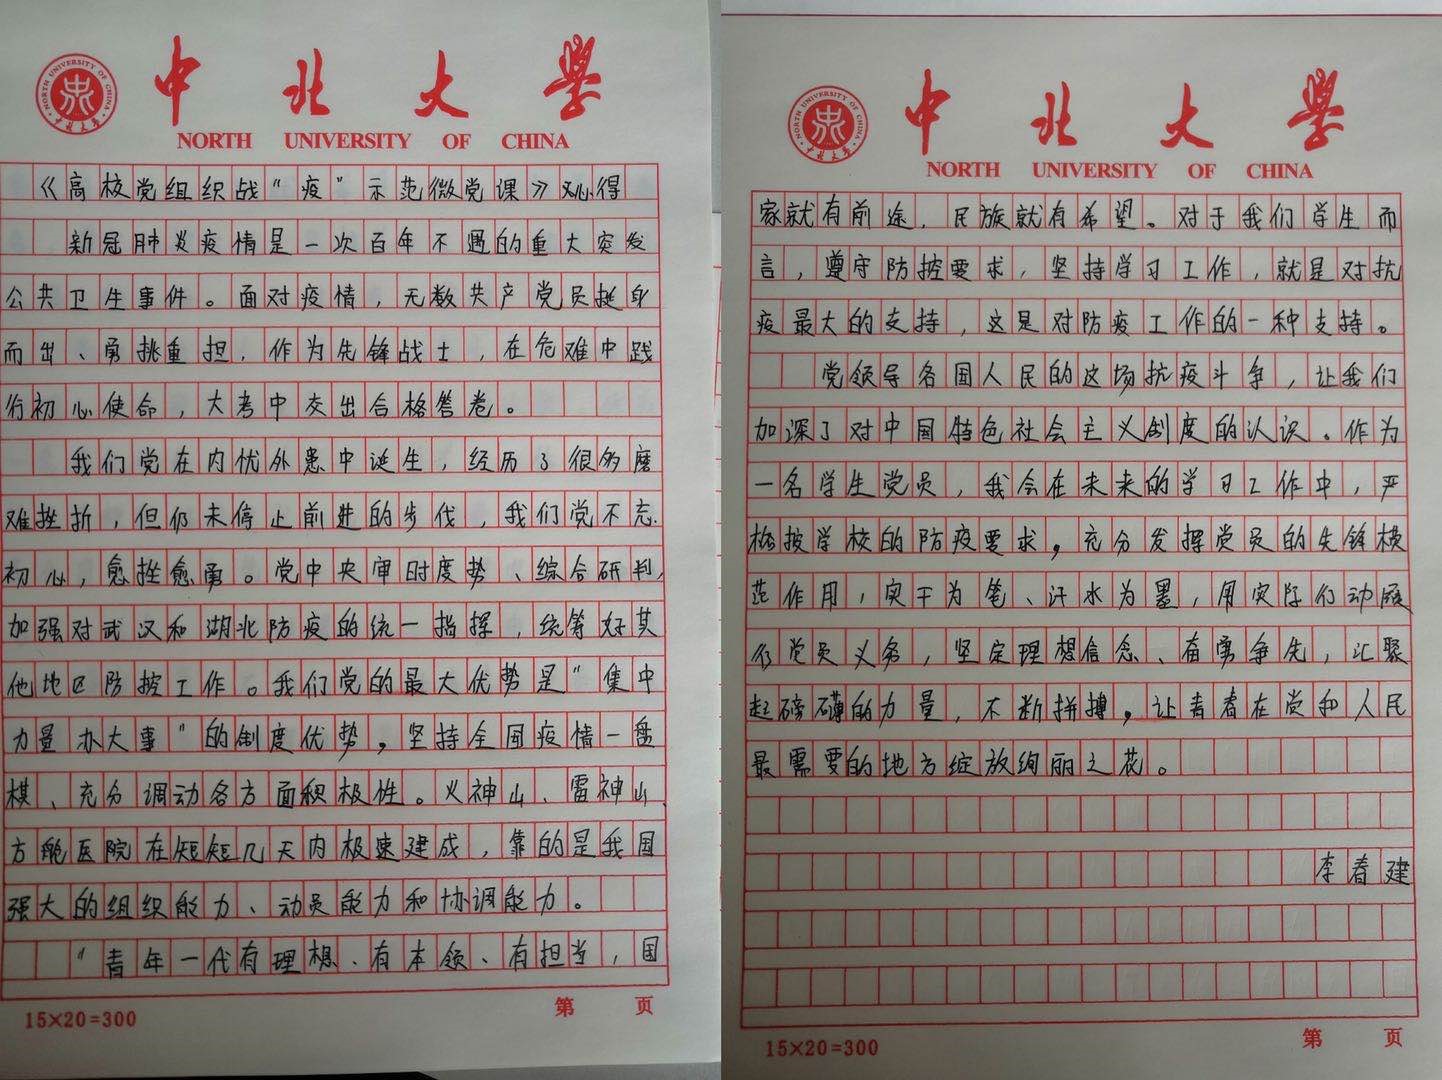 中北大学
NORTH UNIVERSITY OF CHINA
《高校党组织战“疫”示范微党课》心得
新冠肺炎疫情是一次百年不遇的重大突发
公共卫生事件。面对疫情，无数共产党员挺身
而出、勇挑重担，作为先锋战士，在危难中践
行初心使命，大考中交出合格答卷。
我们党在内忧外患中诞生，经历了很多磨
难挫折，但仍未停止前进的步伐，我们党不忘
初心，愈挫愈勇。党中央审时度势、综合研判，
加强对武汉和湖北防疫的统一指挥，统筹好其
他地区防控工作。我们党的最大优势是“集中
力量办大事”的制度优势，坚持全国疫情一盘
棋、充分调动各方面积极性。火神山、雷神山、
方舱医院在短短几天内极速建成，靠的是我国
强大的组织能力、动员能力和协调能力。
“青年一代有理想、有本领、有担当，国
15×20=300
第 页
中北大学
NORTH UNIVERSITY OF CHINA
家就有前途，民族就有希望。对于我们学生而
言，遵守防控要求，坚持学习工作，就是对抗
疫最大的支持，这是对防疫工作的一种支持。
党领导各国人民的这场抗疫斗争，让我们
加深了对中国特色社会主义制度的认识。作为
一名学生党员，我会在未来的学习工作中，严
格按学校的防疫要求，充分发挥党员的先锋模
范作用，实干为笔、汗水为墨，用实际行动履
行党员义务，坚定理想信念、奋勇争先，汇聚
起磅礴的力量，不断拼搏，让青春在党和人民
最需要的地方绽放绚丽之花。
李春建
15×20=300
第 页